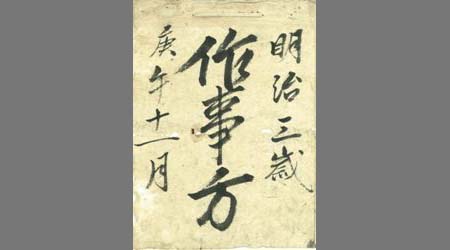 明治三歳
作事方
庚午十一月